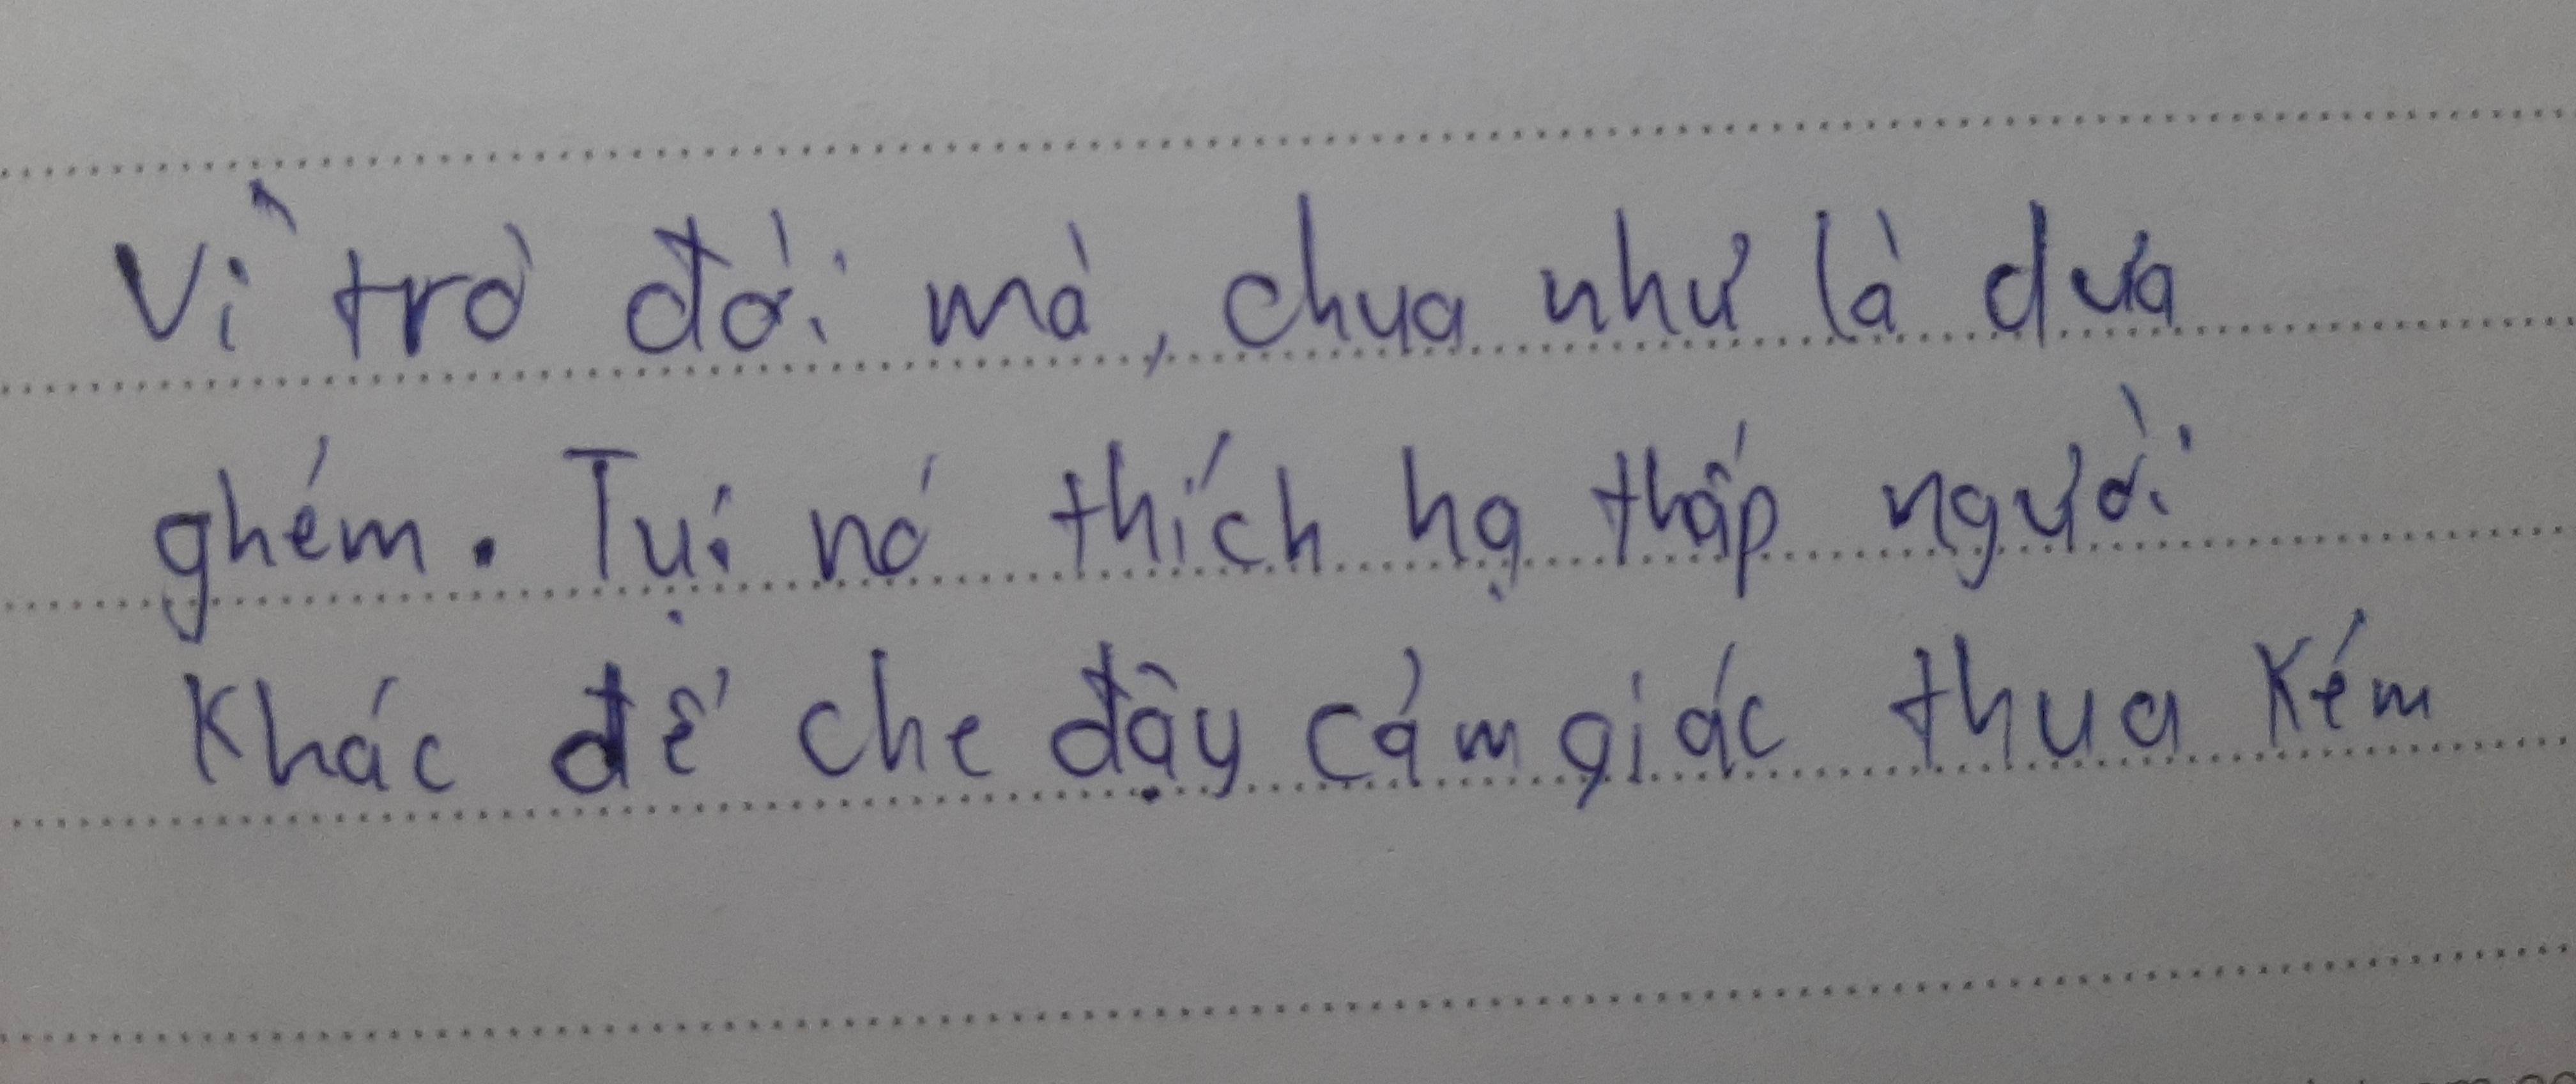 Vì trò đời mà, chua như là dưa
ghém. Tụi nó thích hạ thấp người
khác để che đậy cảm giác thua kém